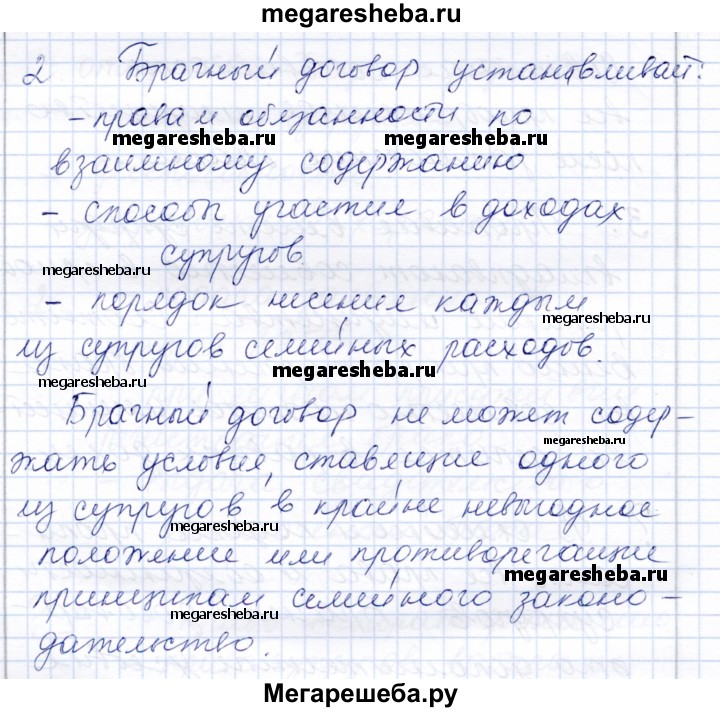 megaresheba.ru
2 Брачный договор устанавливает:
- права и обязанности по
megaresheba.ru megaresheba.ru
взаимному содержанию
- способы участия в доходах
супругов.
megaresheba.ru
- порядок несения каждым
megaresheba.ru
из супругов семейных расходов.
megaresheba.ru
megaresheba.ru
Брачный договор не может содер-
megaresheba.ru
жать условия, ставящие одного
из супругов в крайне невыгодное
megaresheba.ru
положение или противоречащие
megaresheba.ru
принципам семейного законо-
megaresheba.ru
дательство.
Мегарешеба.ру